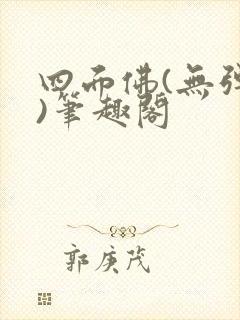 四面佛(無彈
)筆趣閣
郭庚茂